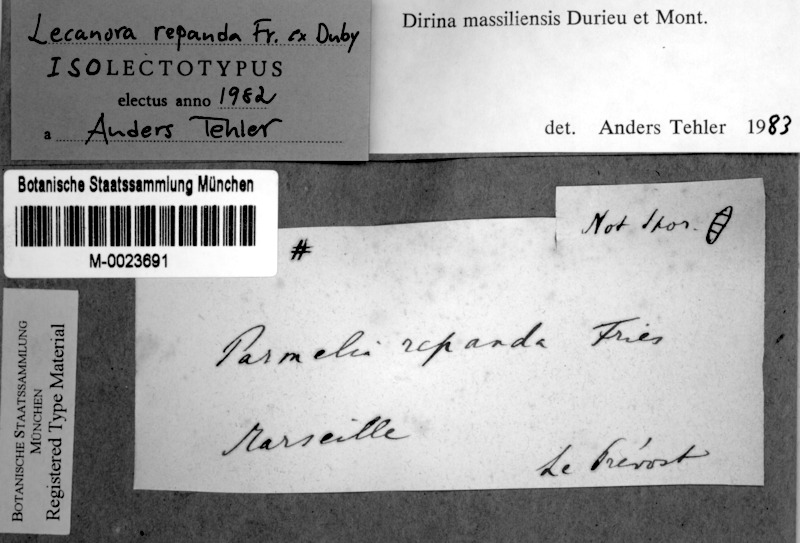 Lecanora repanda Fr. ex Duby
ISOLECTOTYPUS
electus anno 1982
a Anders Tehler
Dirina massiliensis Durieu et Mont.
det. Anders Tehler 1983
Botanische Staatssammlung München
M-0023691
#
Not Spor.
Parmelia repanda Fries
Marseille
Le Prévost
BOTANISCHE STAATSSAMMLUNG
MÜNCHEN
Registered Type Material